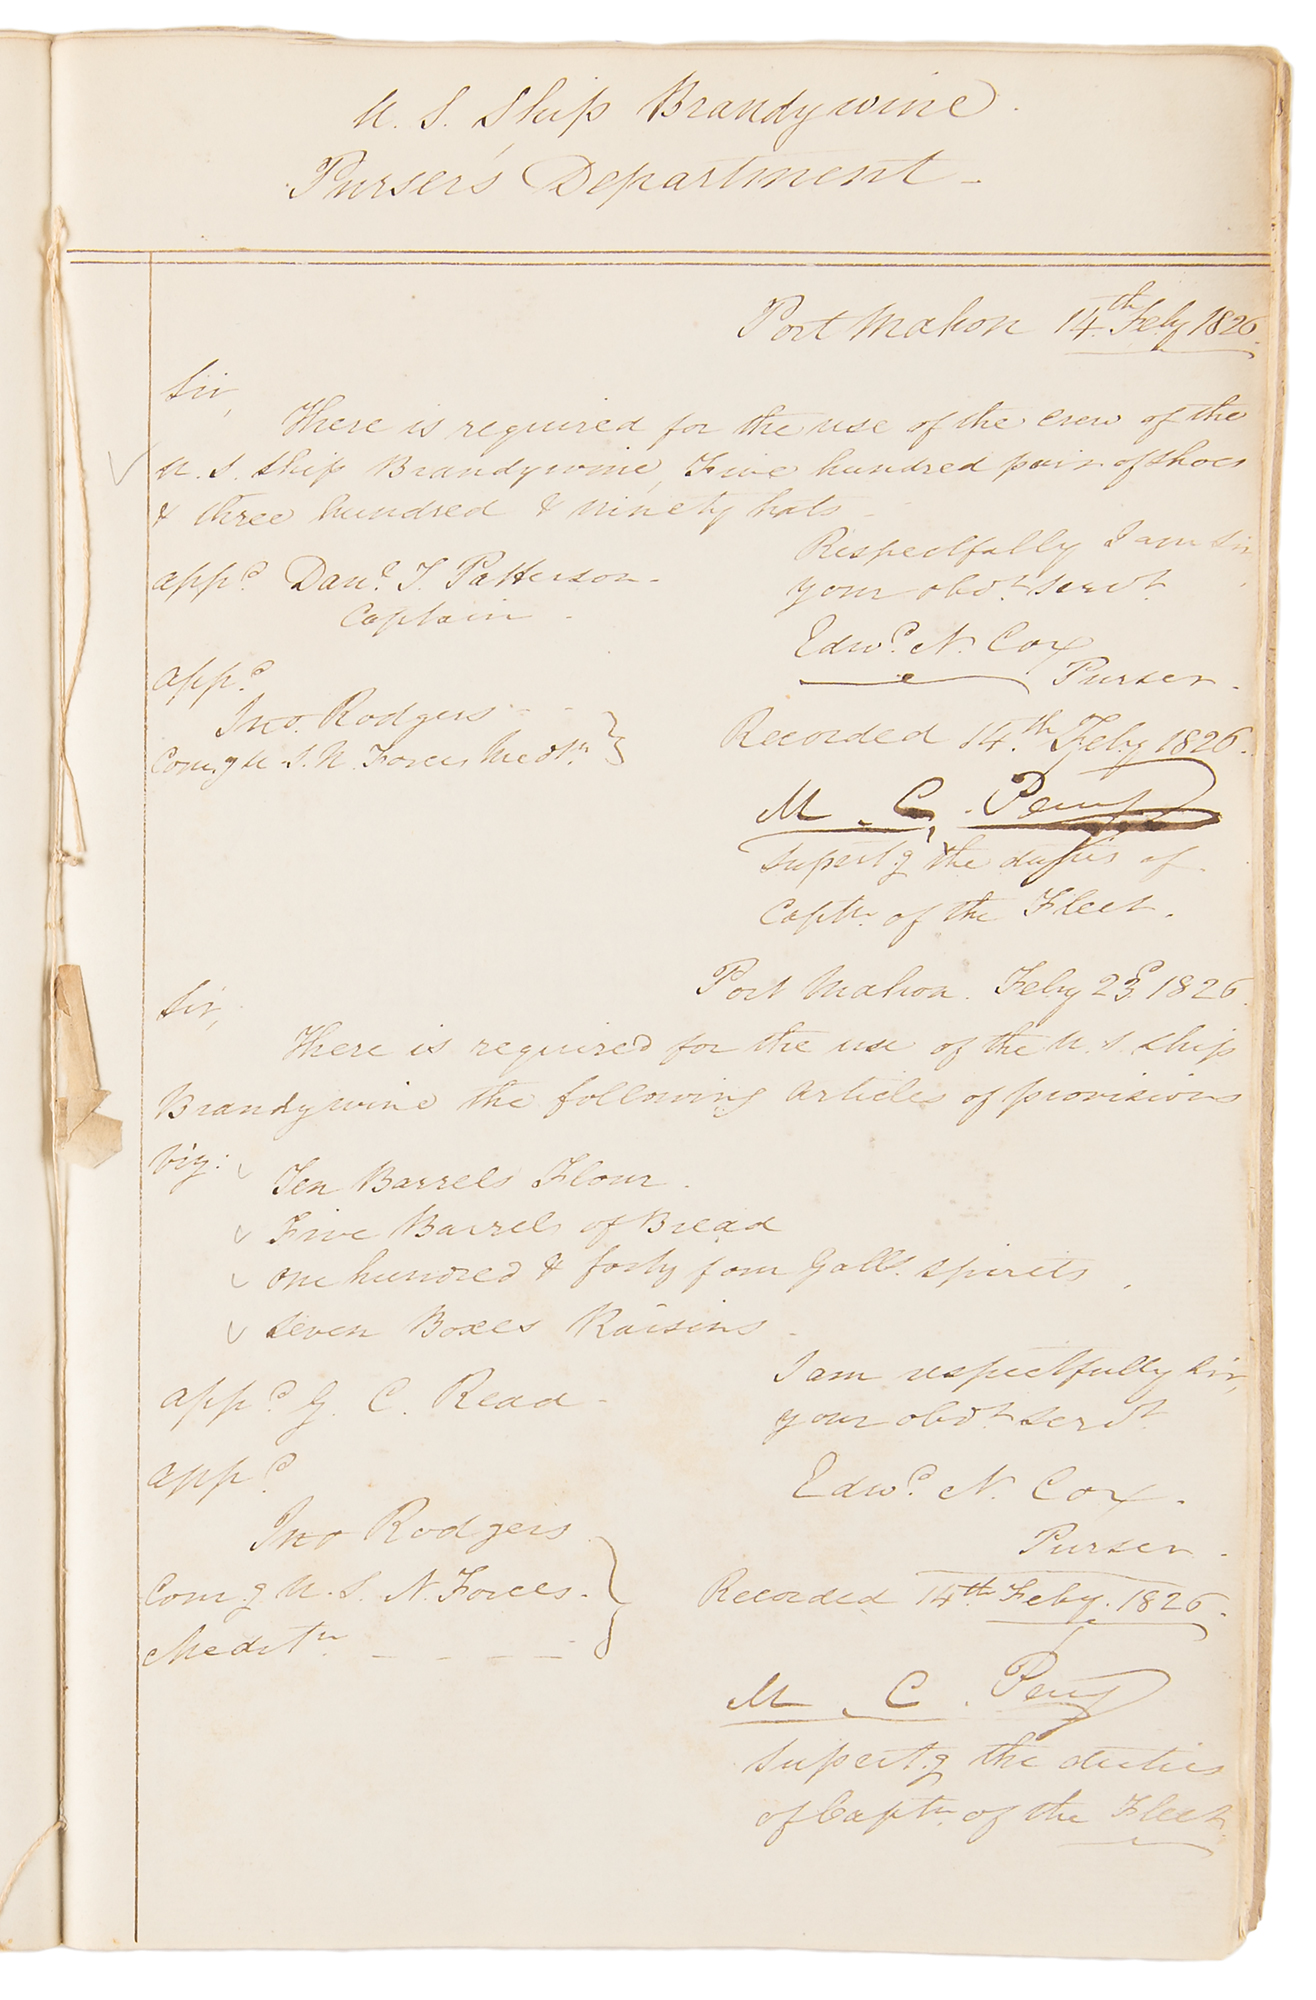 U. S. Ship Brandywine
Purser's Department -
Port Mahon 14th Feby 1826.
Sir,
There is required for the use of the crew of the
U. S. Ship Brandywine, Five hundred pair of shoes
& three hundred & ninety hats -
Respectfully I am Sir,
your obdt servt
Edwd. N. Cox
Purser -
appd. Danl. T. Patterson -
Captain -
appd.
Jno. Rodgers - -
Comg U. S. N. Forces Medtn.
Recorded 14th Feby 1826.
M. C. Perry
Supert.g the duties of
Captn. of the Fleet.
Port Mahon. Feby 23d. 1826.
Sir,
There is required for the use of the U. S. Ship
Brandywine the following articles of provisions
Viz:
Ten Barrels Flour.
Five Barrels of Bread
One hundred & forty four Galls. spirits
Seven Boxes Raisins -
I am respectfully Sir,
your obdt servt
Edwd. N. Cox.
Purser -
appd. G. C. Read -
appd.
Jno Rodgers
Comg U. S. N. Forces -
Meditn. - - - -
Recorded 14th Feby. 1826.
M. C. Perry
Supert.g the duties
of Captn. of the Fleet